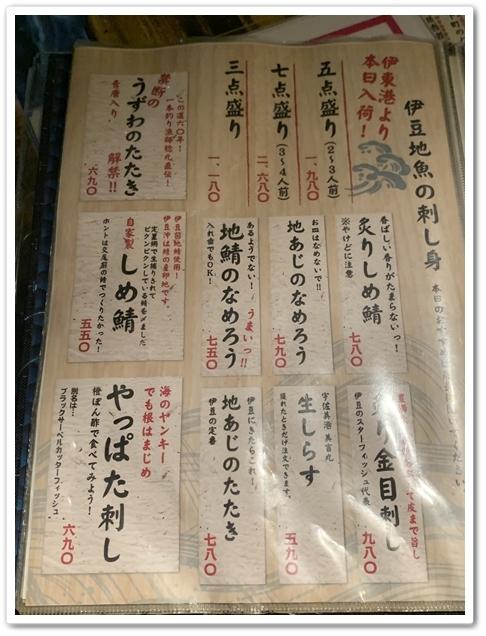 伊豆地魚の刺し身
伊東港より
本日入荷！
五点盛り（２〜３人前）
一、九八〇
七点盛り（３〜４人前）
二、六八〇
三点盛り
一、一八〇
禁断の
この道六〇年！
一本釣り漁師稔丸直伝！
うずわのたたき
青唐入り
解禁!!
六九〇
香ばしい香りがたまらないっ！
炙りしめ鯖
※やけどに注意
七八〇
お皿はなめないで!!
地あじのなめろう
七九〇
あるようでない！うまいっ!!
地鯖のなめろう
入れ歯でもＯＫ！
七五〇
伊豆前地鯖使用！
伊豆沖は鯖の産卵地です。
定置網で生捕りされて
ピクンピクンしている鯖を〆ました
自家製
しめ鯖
ホントは文庫前の鯖でつくりたかった！
五五〇
て皮まで旨し
り金目刺し
伊豆のスターフィッシュ代表
九八〇
宇佐美港 美吉丸
生しらす
獲れたときだけ注文できます。
五九〇
伊豆にきたらこれ！
地あじのたたき
伊豆の定番
七八〇
海のヤンキー
でも根はまじめ
やっぱた刺し
橙ぽん酢で食べてみよう！
別名は…
ブラックサーベルカッターフィッシュ
六九〇